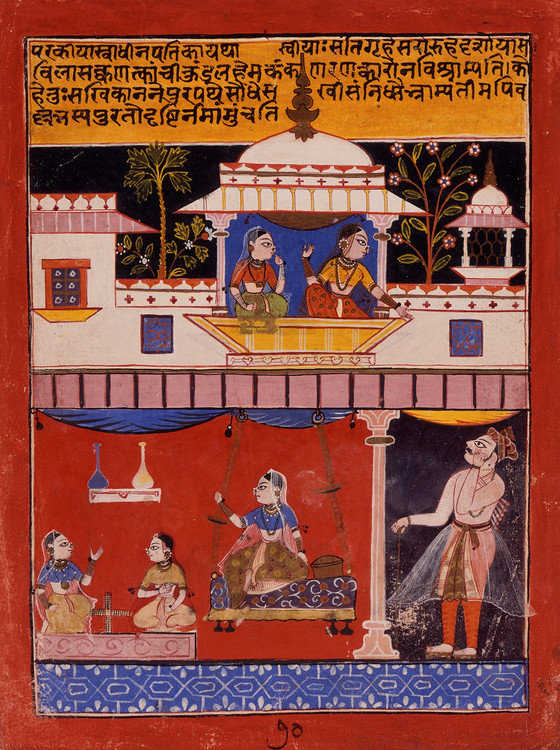 परकीयास्वाधीनपतिकायथा स्वीयाःसंतिगृहेसरोरुहदृशोयासां
विलासक्वणत्कांचीकुंडलहेमकंकणझणत्कारोनविश्राम्यतिको
हेतुःसखिकाननेपुरपथेसौधेसखीसंनिधौभ्राम्यंतीमपिव
ल्लभस्यपुरतोदृष्टिर्नमामुंचति
१०